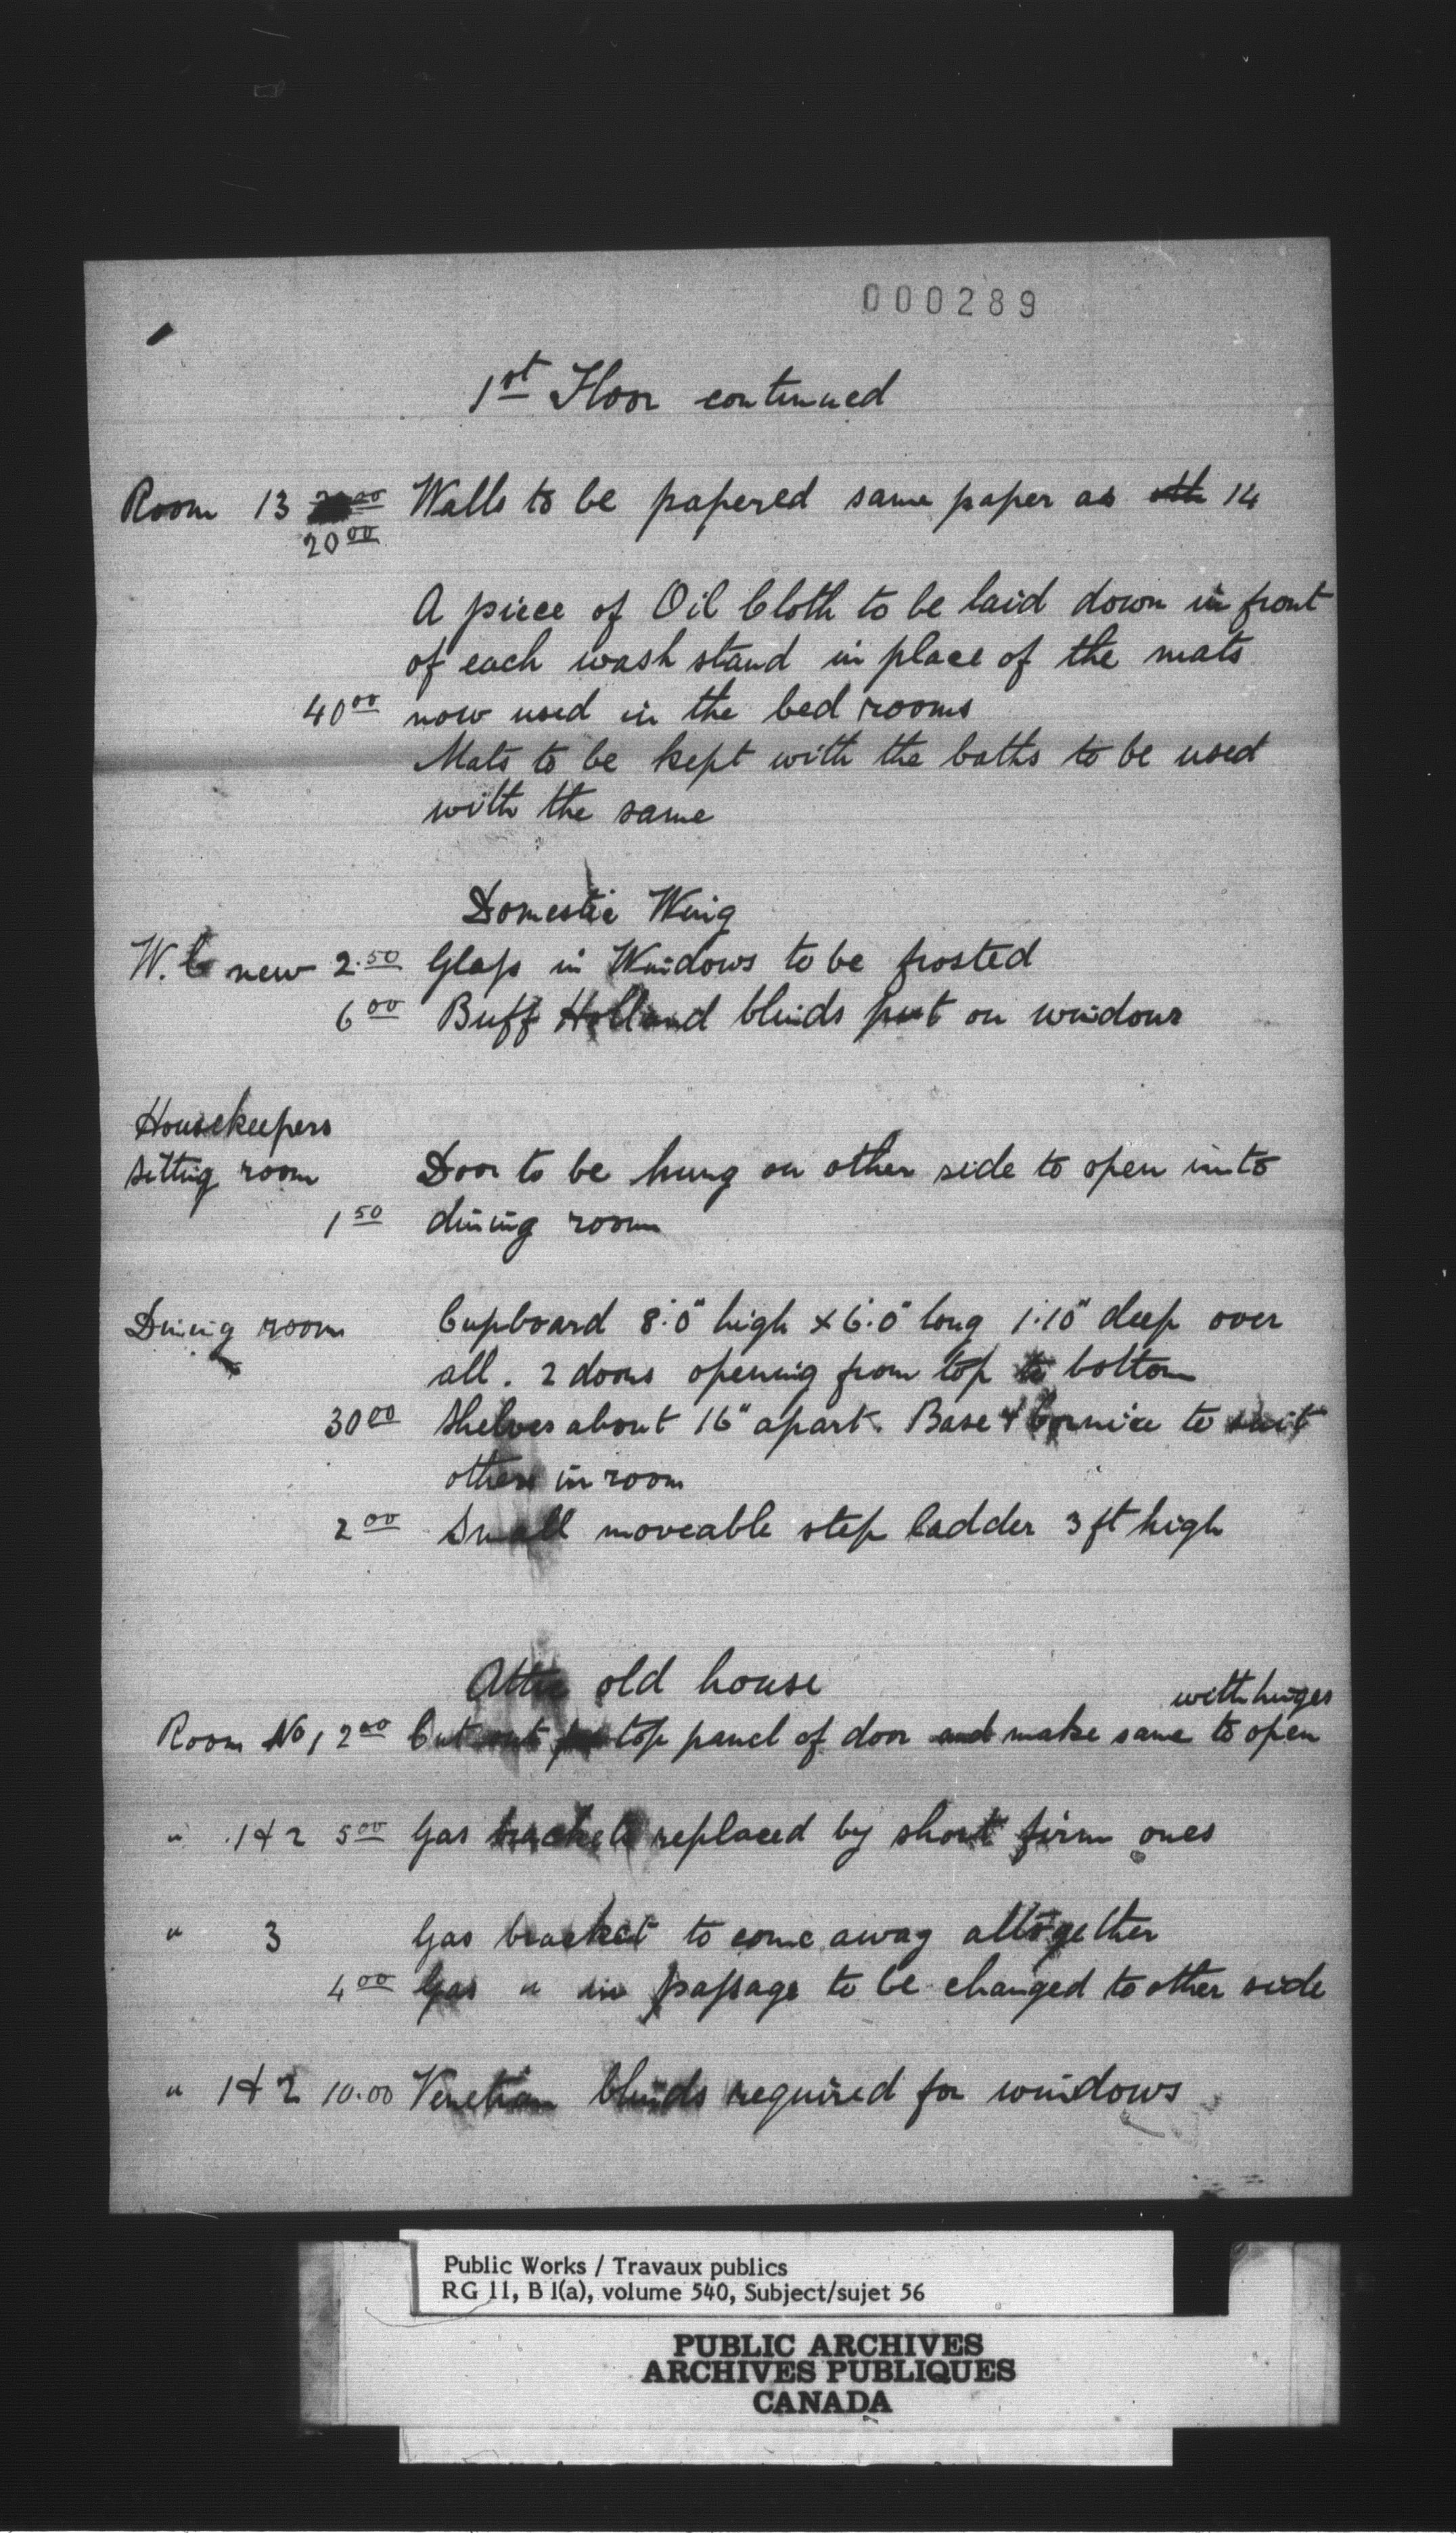 000289
1st Floor continued
Room 13 Walls to be papered same paper as 14
20 00
A piece of Oil Cloth to be laid down in front
of each wash stand in place of the mats
40 00 now used in the bed rooms
Mats to be kept with the baths to be used
with the same
Domestic Wing
W. C new 2.50 Glass in Windows to be frosted
6 00 Buff Holland blinds put on windows
Housekeepers
Sitting room Door to be hung on other side to open into
1 50 dining room
Dining room Cupboard 8'.0" high x 6'.0" long 1'.10" deep over
all. 2 doors opening from top to bottom
30 00 Shelves about 16" apart. Base & Cornice to suit
others in room
2 00 Small moveable step ladder 3 ft high
Attic old house
with hinges
Room No 1 2 00 Cut out top panel of door and make same to open
" 1 & 2 5 00 Gas brackets replaced by short firm ones
" 3 Gas bracket to come away altogether
4 00 Gas " in passage to be changed to other side
" 1 & 2 10.00 Venetian blinds required for windows
Public Works / Travaux publics
RG 11, B 1(a), volume 540, Subject/sujet 56
PUBLIC ARCHIVES
ARCHIVES PUBLIQUES
CANADA